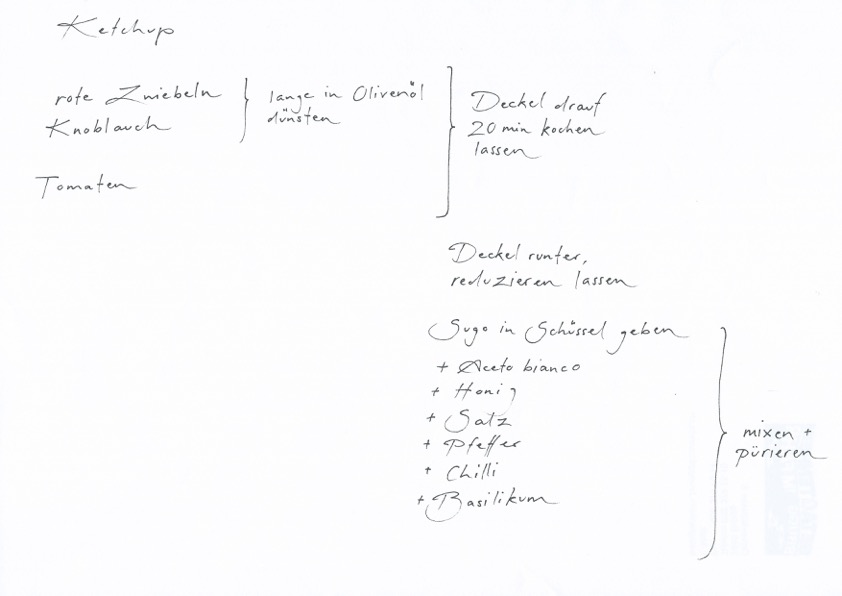 Ketchup
rote Zwiebeln
Knoblauch
lange in Olivenöl
dünsten
Tomaten
Deckel drauf
20 min kochen
lassen
Deckel runter,
reduzieren lassen
Sugo in Schüssel geben
+ Aceto bianco
+ Honig
+ Salz
+ Pfeffer
+ Chilli
+ Basilikum
mixen +
pürieren